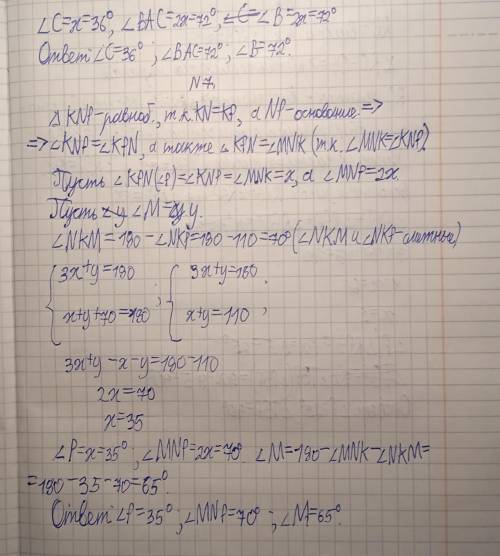 ∠C=x=36°, ∠BAC=2x=72°, ∠C= ∠B=2x=72°
Ответ: ∠C=36°, ∠BAC=72°; ∠B=72°.
N 7.
Δ KNP-равноб., т.к. KN=KP, а NP-основание. =>
=> ∠KNP=∠KPN, а также ∠KPN=∠MNK (т.к. ∠MNK=∠KNP)
Пусть ∠KPN(∠P)=∠KNP=∠MNK=x, а ∠MNP=2x.
Пусть ∠M= y.
∠NKM=180-∠NKP=180-110=70° (∠NKM и ∠NKP-смежные)
{ 3x+y=180 ; { 3x+y=180
x+y+70=180 x+y=110 ;
3x+y-x-y=180-110
2x=70
x=35
∠P=x=35°; ∠MNP=2x=70° ∠M=180-∠MNK-∠NKM=
=180-35-70=65°
Ответ: ∠P=35°; ∠MNP=70° ; ∠M=65°.